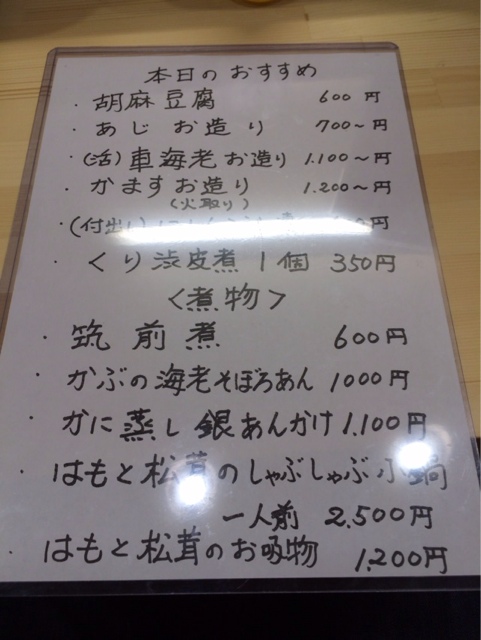 本日のおすすめ
・胡麻豆腐 600円
・あじお造り 700〜円
・(活)車海老お造り 1.100〜円
・かますお造り 1.200〜円
(火取り)
・(付出し) 円
・くり渋皮煮 1個 350円
<煮物>
・筑前煮 600円
・かぶの海老そぼろあん 1000円
・かに蒸し銀あんかけ 1.100円
・はもと松茸のしゃぶしゃぶ小鍋
一人前 2.500円
・はもと松茸のお吸物 1.200円